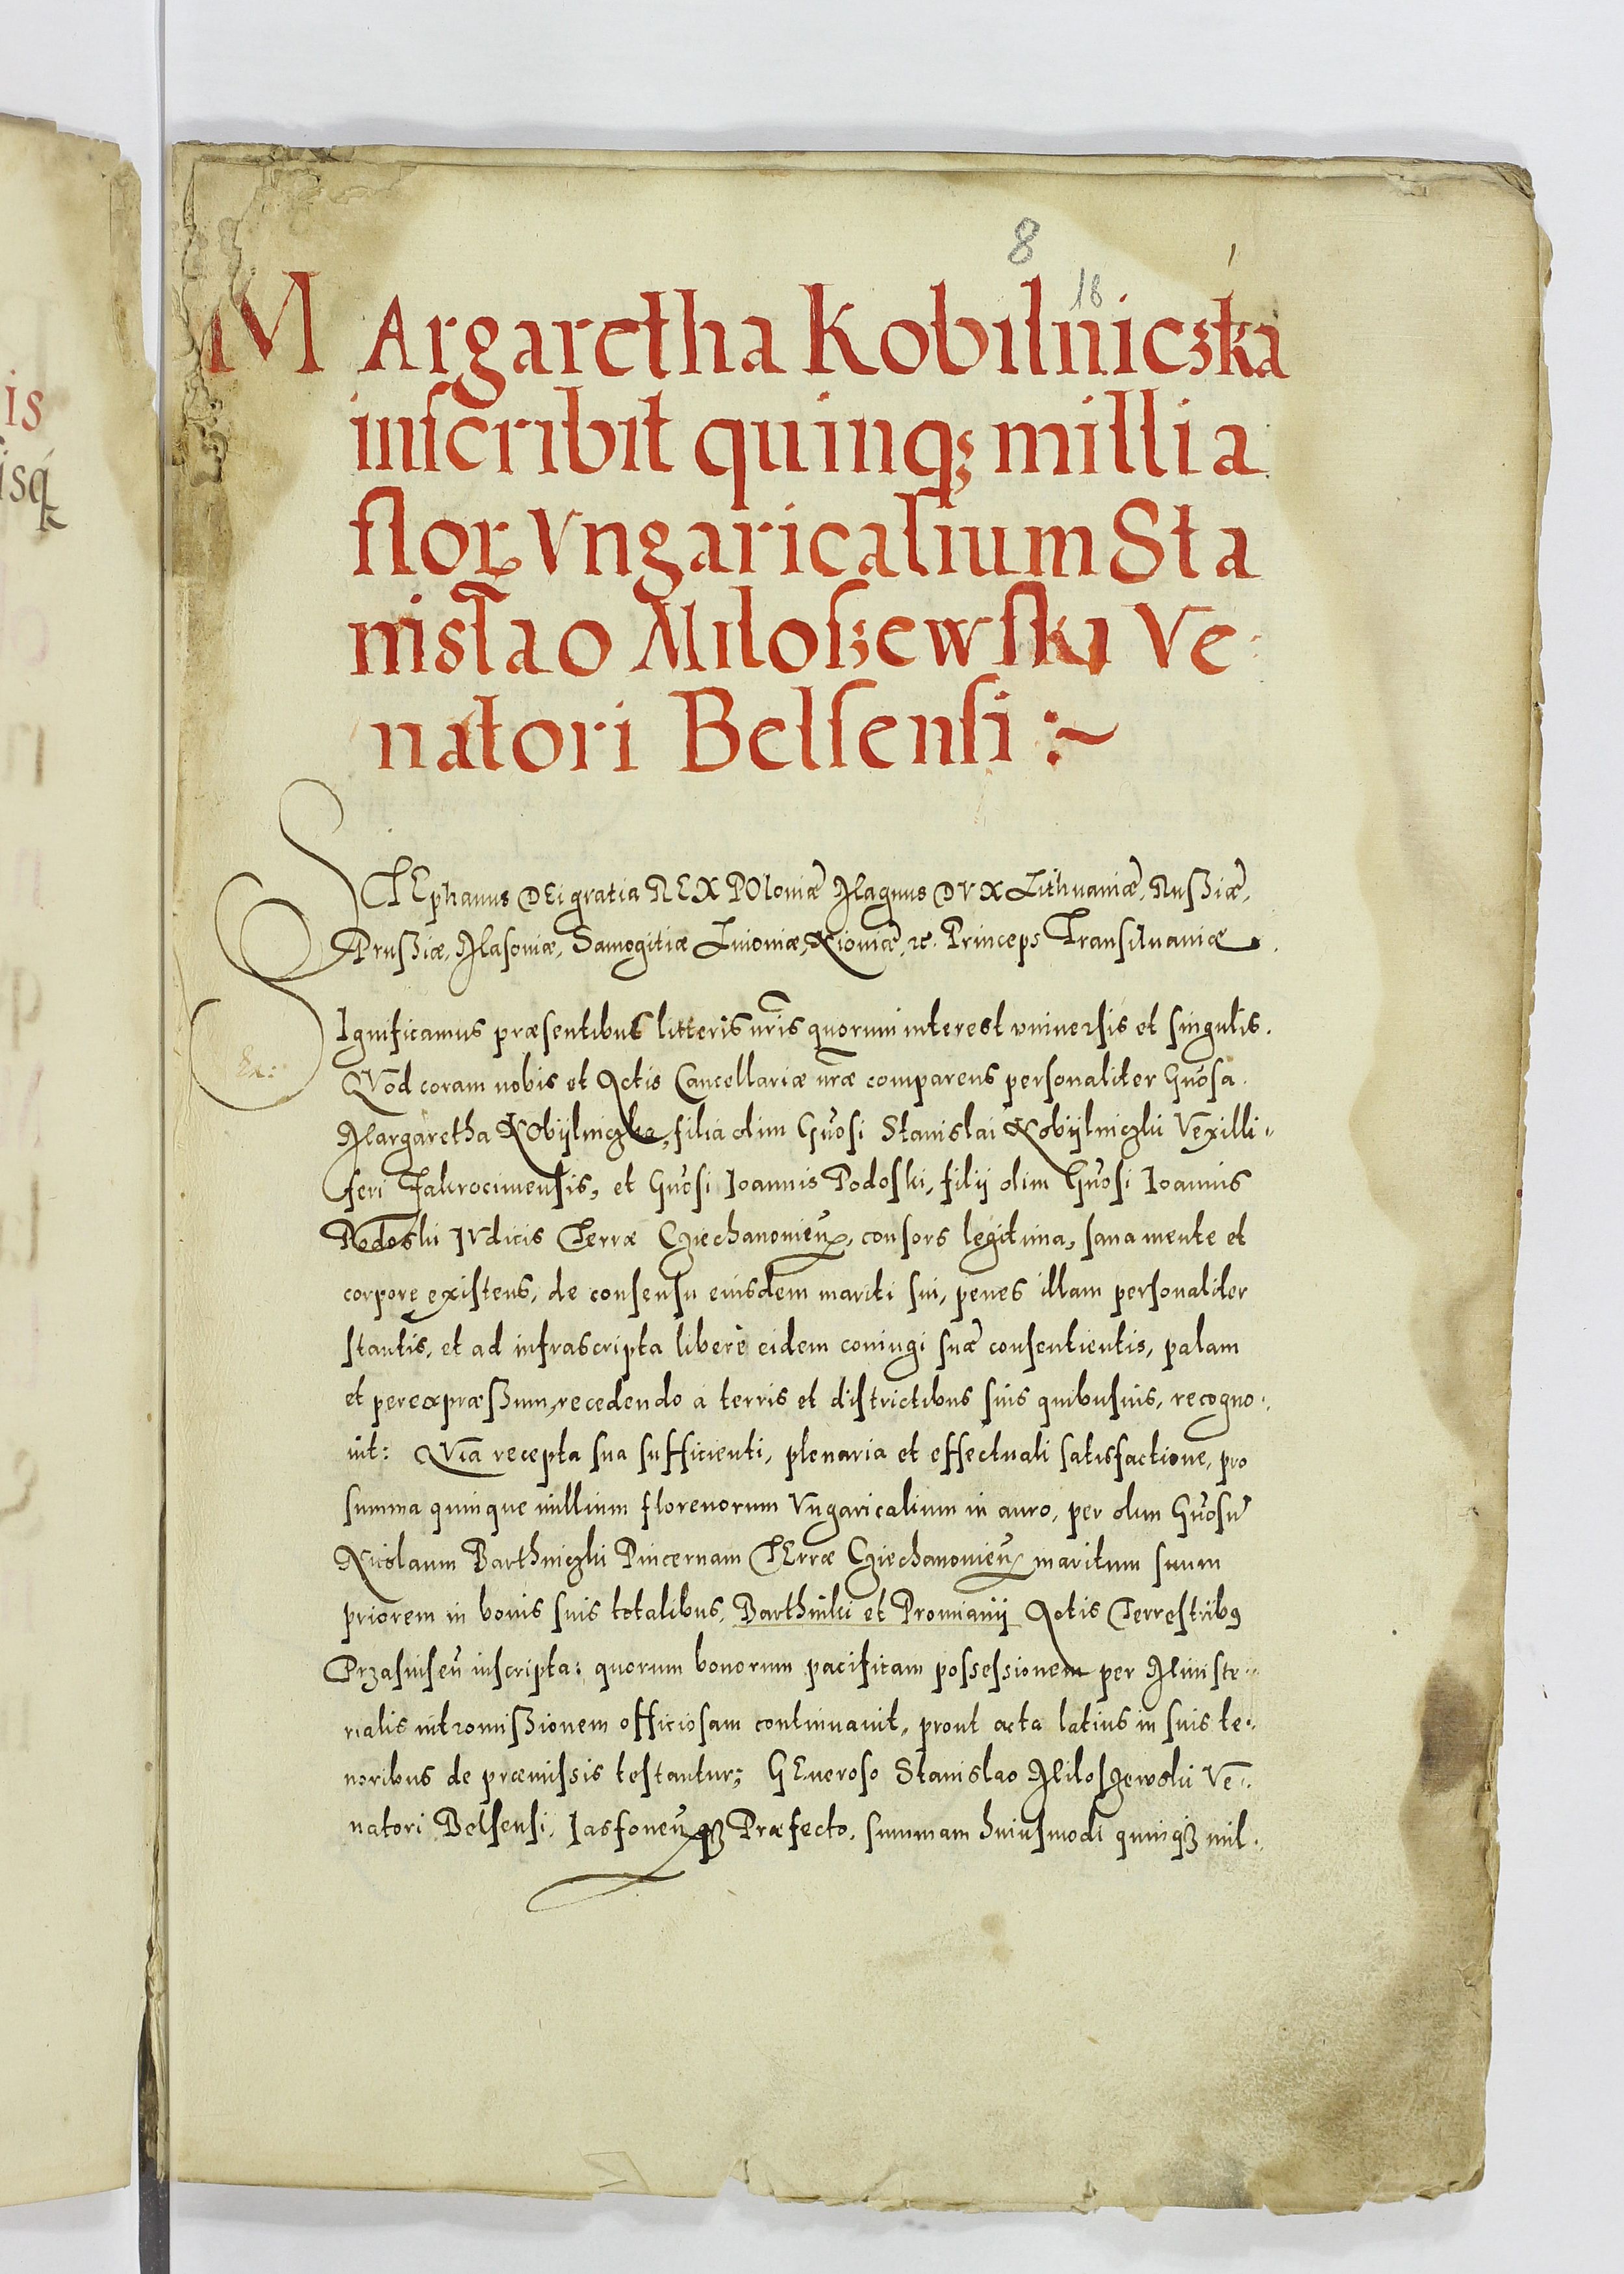 8
18
MArgaretha Kobilniczka
inscribit quinq; millia
floꝝ Vngaricalium Sta
nislao Miloszewski Ve
natori Belsensi :~
STEphanus DEi gratia REX POloniæ Magnus DVX Lithuaniæ, Rußiæ,
Prußiæ, Masoniæ, Samogitiæ Liuoniæ, Kiouiæ, ꝛc. Princeps Transiluaniæ.
SIgnificamus præsentibus litteris nr̃is quorum interest vniuersis et singulis.
QVod coram nobis et Actis Cancellariæ nr̃æ comparens personaliter Gn̄osa
Margaretha KObÿlniczka, filia olim Gn̄osi Stanislai Kobÿlniczki Vexilli„
feri Zakrocimensis, et Gn̄osi Ioannis Podoski, filÿ olim Gn̄osi Ioannis
Podoski IVdicis Terræ Cziechanoñieñ, consors legitima, sana mente et
corpore existens, de consensu eiusdem mariti sui, penes illam personaliter
stantis, et ad infrascripta liberè eidem coniugi suæ consentientis, palam
et per expræßum, recedendo à terris et districtibus suis quibusuis, recogno„
uit: QVia recepta sua sufficienti, plenaria et effectuali satisfactione, pro
summa quinque millium florenorum Vngaricalium in auro, per olim Gn̄osũ
Nicolaum Barthniczki Pincernam TErræ Cziechanouieñ maritum suum
priorem in bonis suis totalibus, Barthniki et Promianÿ Actis Terrestribꝰ
Przasnseñ inscripta: quorum bonorum pacificam possessionem per Ministe„
rialis intromißionem officiosam continuauit, prout acta latius in suis te„
noribus de præmissis testantur; GEneroso Stanislao Miloszewski Ve„
natori Belsensi, Iasfoneñ qȝ Præfecto, summam huiusmodi quinqȝ mil„